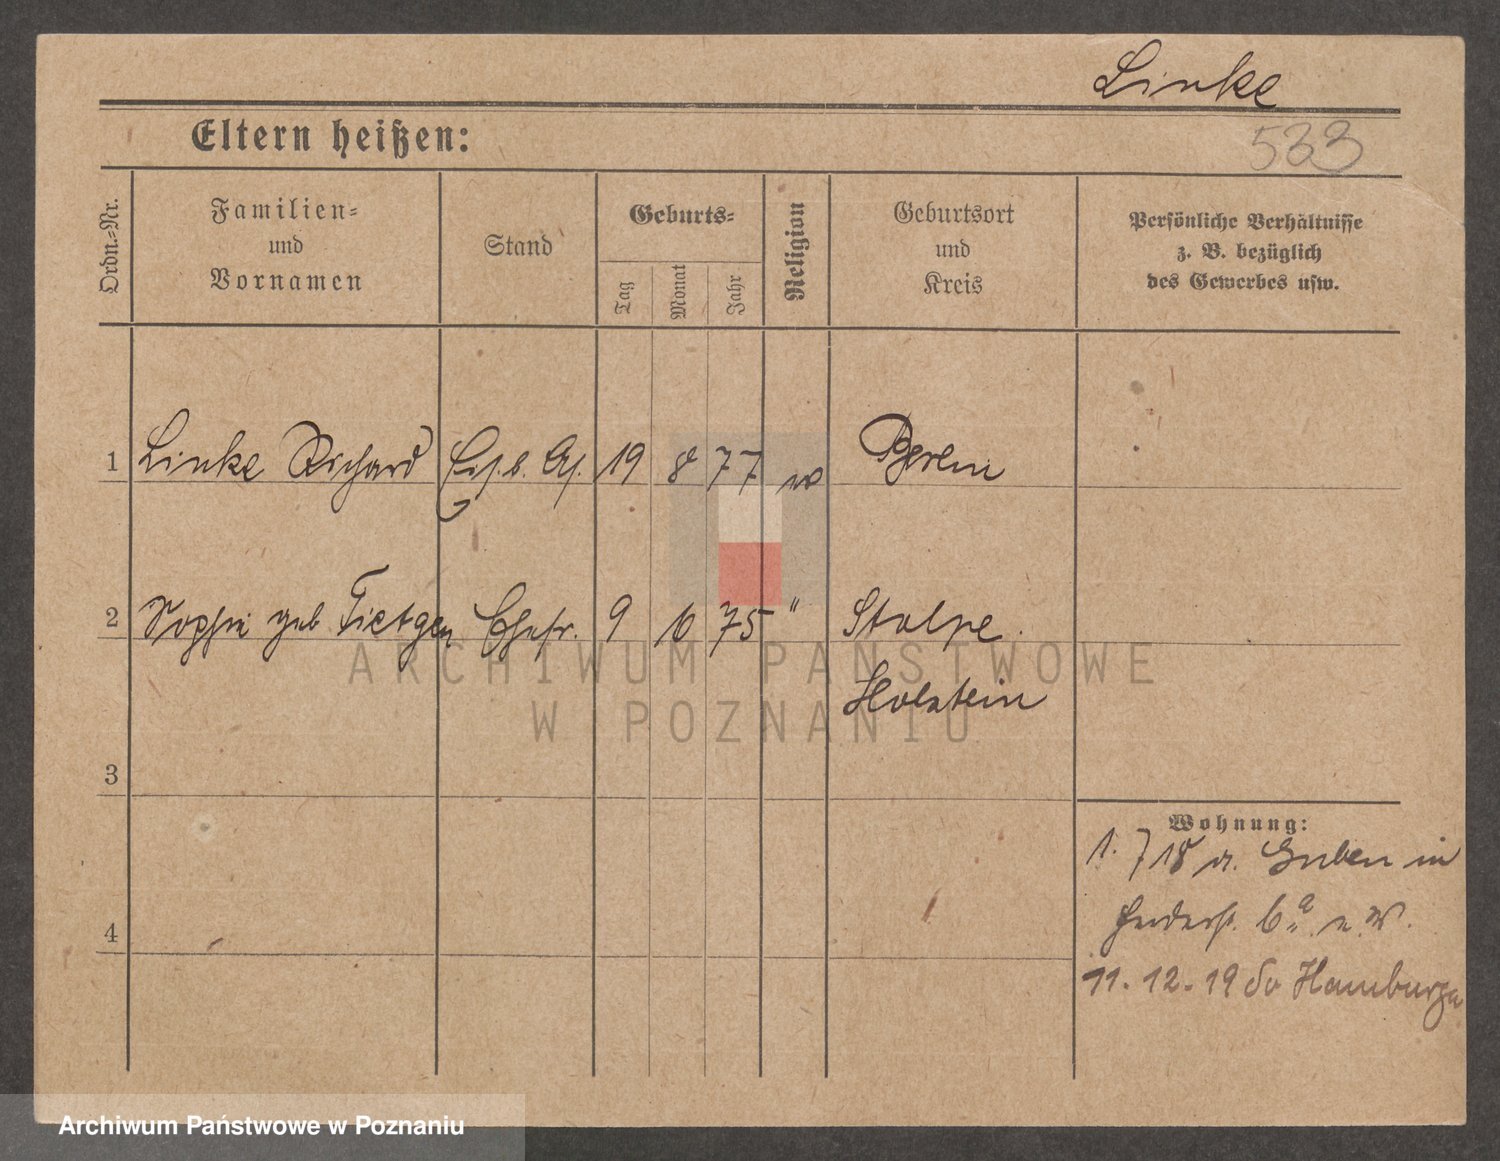 Linke
533
Eltern heißen:
Ordn.-Nr.
Familien-
und
Vornamen
Stand
Geburts-
Tag
Monat
Jahr
Religion
Geburtsort
und
Kreis
Persönliche Verhältnisse
z. B. bezüglich
des Gewerbes usw.
1 Linke Richard 19 8 77 Berlin
2 Sophie geb Tietgen Ehefr. 9 6 75 " Stolpe
Holstein
3
Wohnung:
1. 7 18 Guben in
4
11. 12. 19 Hamburg
ARCHIWUM PAŃSTWOWE
W POZNANIU
Archiwum Państwowe w Poznaniu